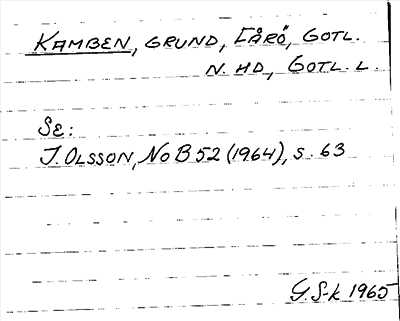 KAMBEN, GRUND, FÅRÖ, GOTL.
N. HD, GOTL. L.
SE:
I. OLSSON, NoB 52 (1964), S. 63
G. S-k 1965